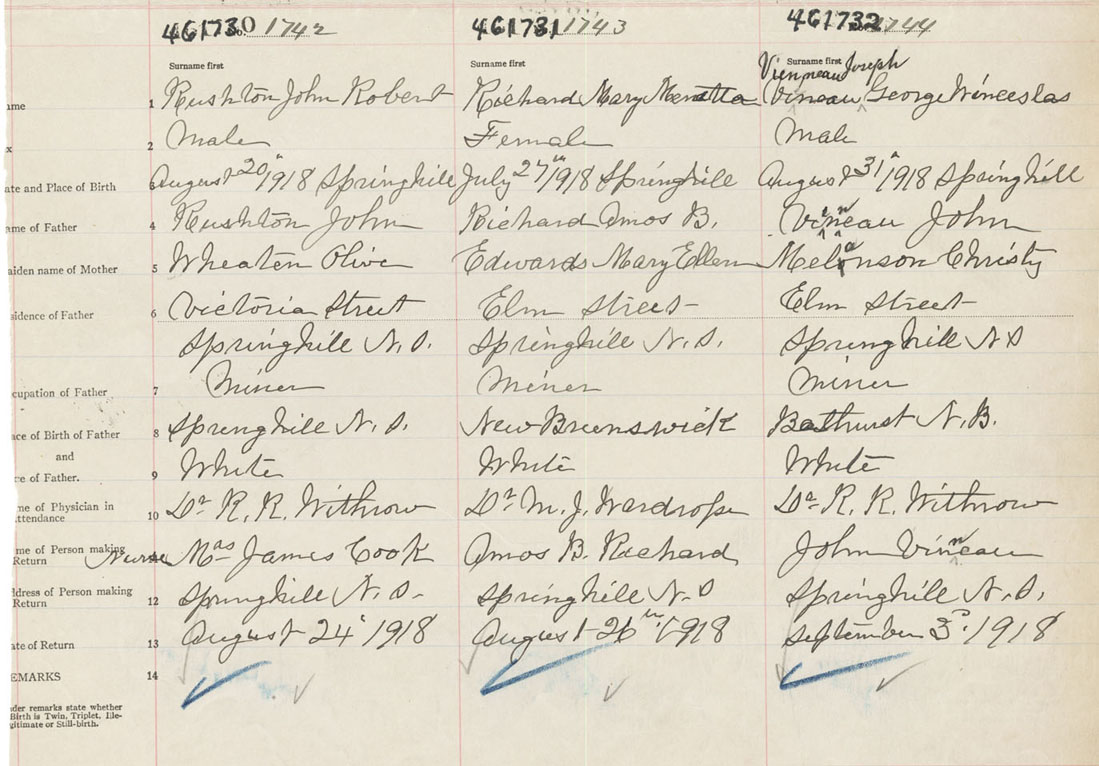 461730 No. 1742 461731 1743 461732 1744
Surname first Surname first Surname first
Vienneau Joseph
ame 1 Rushton John Robert Richard Mary Vineau George Winceslas
x 2 Male Female Male
ate and Place of Birth August 20th 1918 Springhill July 27th 1918 Springhill August 31st 1918 Springhill
ame of Father 4 Rushton John Richard Amos B. Vineau John
aiden name of Mother 5 Wheaton Olive Edwards Mary Ellen Melanson Christy
sidence of Father 6 Victoria Street Elm Street Elm Street
Springhill N.S. Springhill N.S. Springhill N S
cupation of Father 7 Miner Miner Miner
ace of Birth of Father 8 Springhill N.S. New Brunswick Bathurst N.B.
and
ce of Father. 9 White White White
me of Physician in 10 Dr R. R. Withrow Dr M. J. Wardrope Dr R. R. Withrow
ttendance
me of Person making Nurse Mrs James Cook Amos B. Richard John Vineau
Return
ddress of Person making 12 Springhill N.S. Springhill N.S Springhill N.S.
Return
ate of Return 13 August 24 1918 August 26th 1918 September 3rd 1918
EMARKS 14
nder remarks state whether
Birth is Twin, Triplet, Ille-
gitimate or Still-birth.